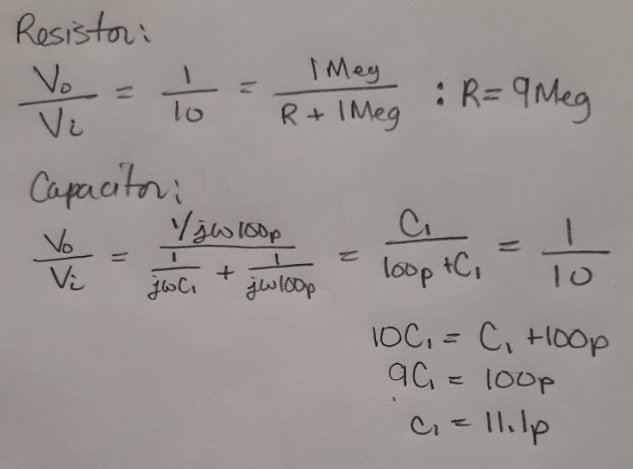 Resistor:
Vo/Vi = 1/10 = 1Meg/(R + 1Meg) : R = 9Meg
Capacitor:
Vo/Vi = (1/jω100p)/(1/jωC₁ + 1/jω100p) = C₁/(100p + C₁) = 1/10
10C₁ = C₁ + 100p
9C₁ = 100p
C₁ = 11.1p